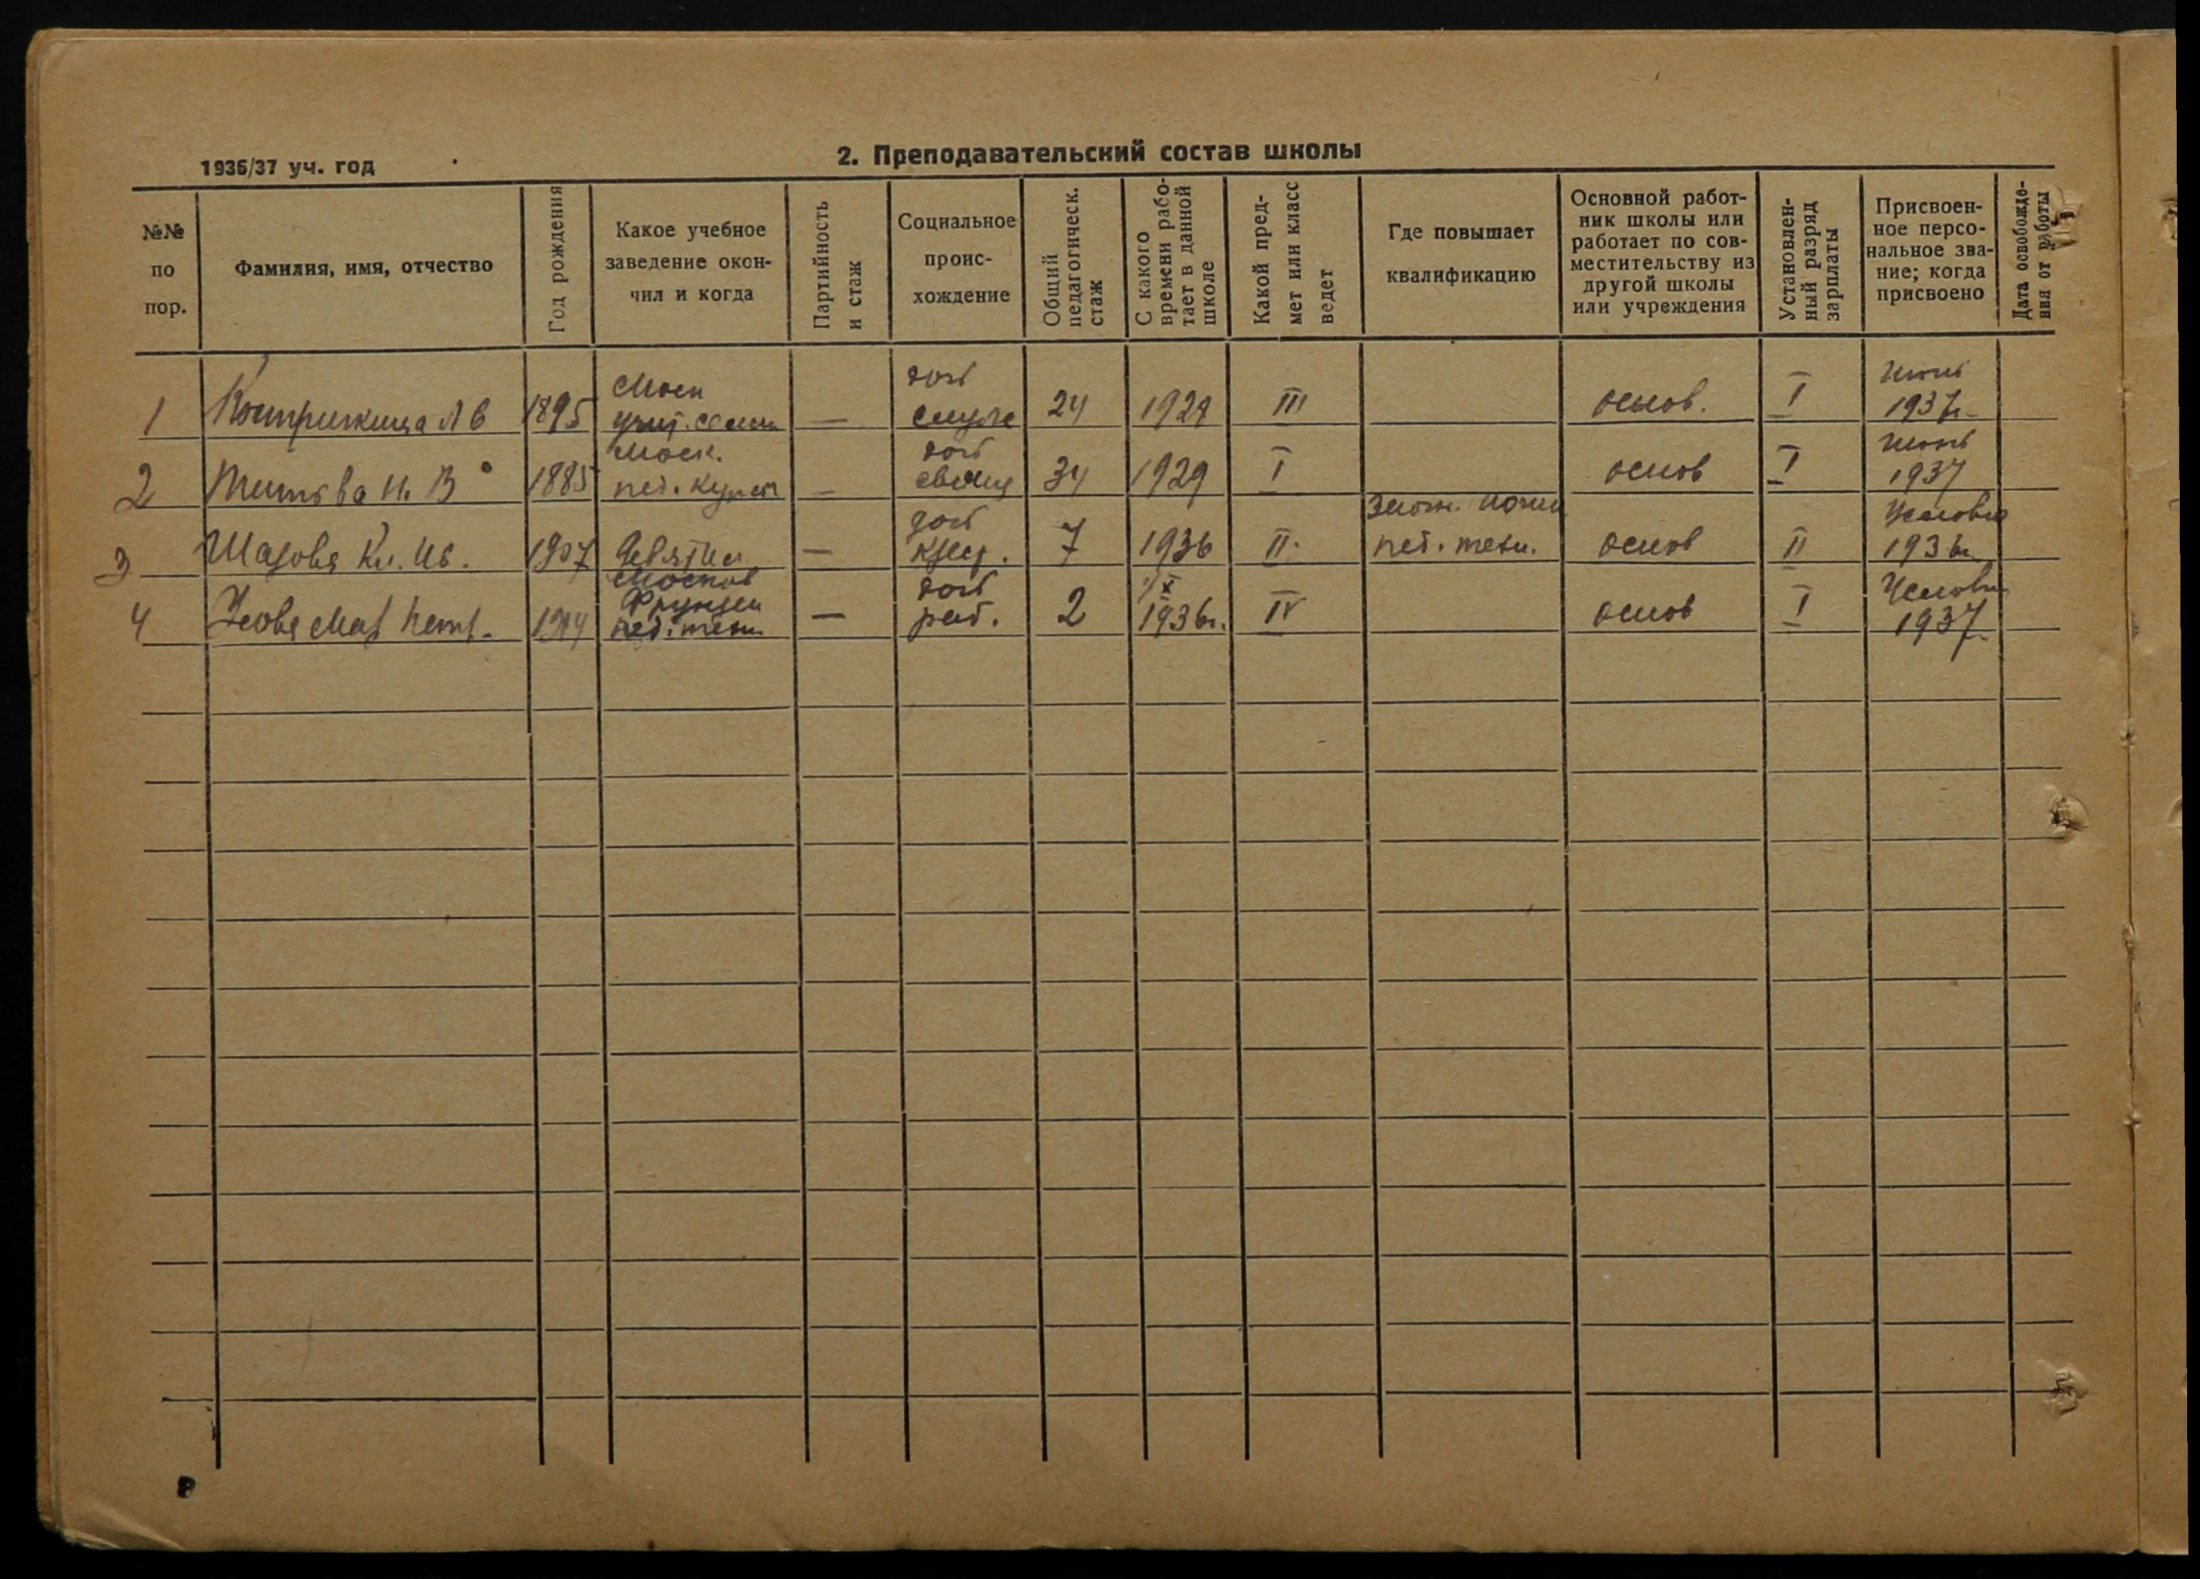 1936/37 уч. год
2. Преподавательский состав школы
№№ по пор.
Фамилия, имя, отчество
Год рождения
Какое учебное заведение окон-
чил и когда
Партийность
и стаж
Социальное
проис-
хождение
Общий
педагогическ.
стаж
С какого
времени рабо-
тает в данной
школе
Какой пред-
мет или класс
ведет
Где повышает
квалификацию
Основной работ-
ник школы или
работает по сов-
местительству из
другой школы
или учреждения
Установлен-
ный разряд
зарплаты
Присвоен-
ное персо-
нальное зва-
ние; когда
присвоено
Дата освобожде-
ния от работы
1 1895 Моск учит. семин — дочь служ 24 1928 III основ. I Июнь 1937г.
2 Титова Н. В 1885 Моск. пед. курсы — дочь свящ 34 1929 I основ I Июнь 1937
3 Кл. Ив. 1907 — дочь 7 1936 II. заочн. пед. техн. основ II Условно 1936г.
4 Мар Петр. пед. техн. — дочь раб. 2 1936г. IV основ I Условно 1937
8